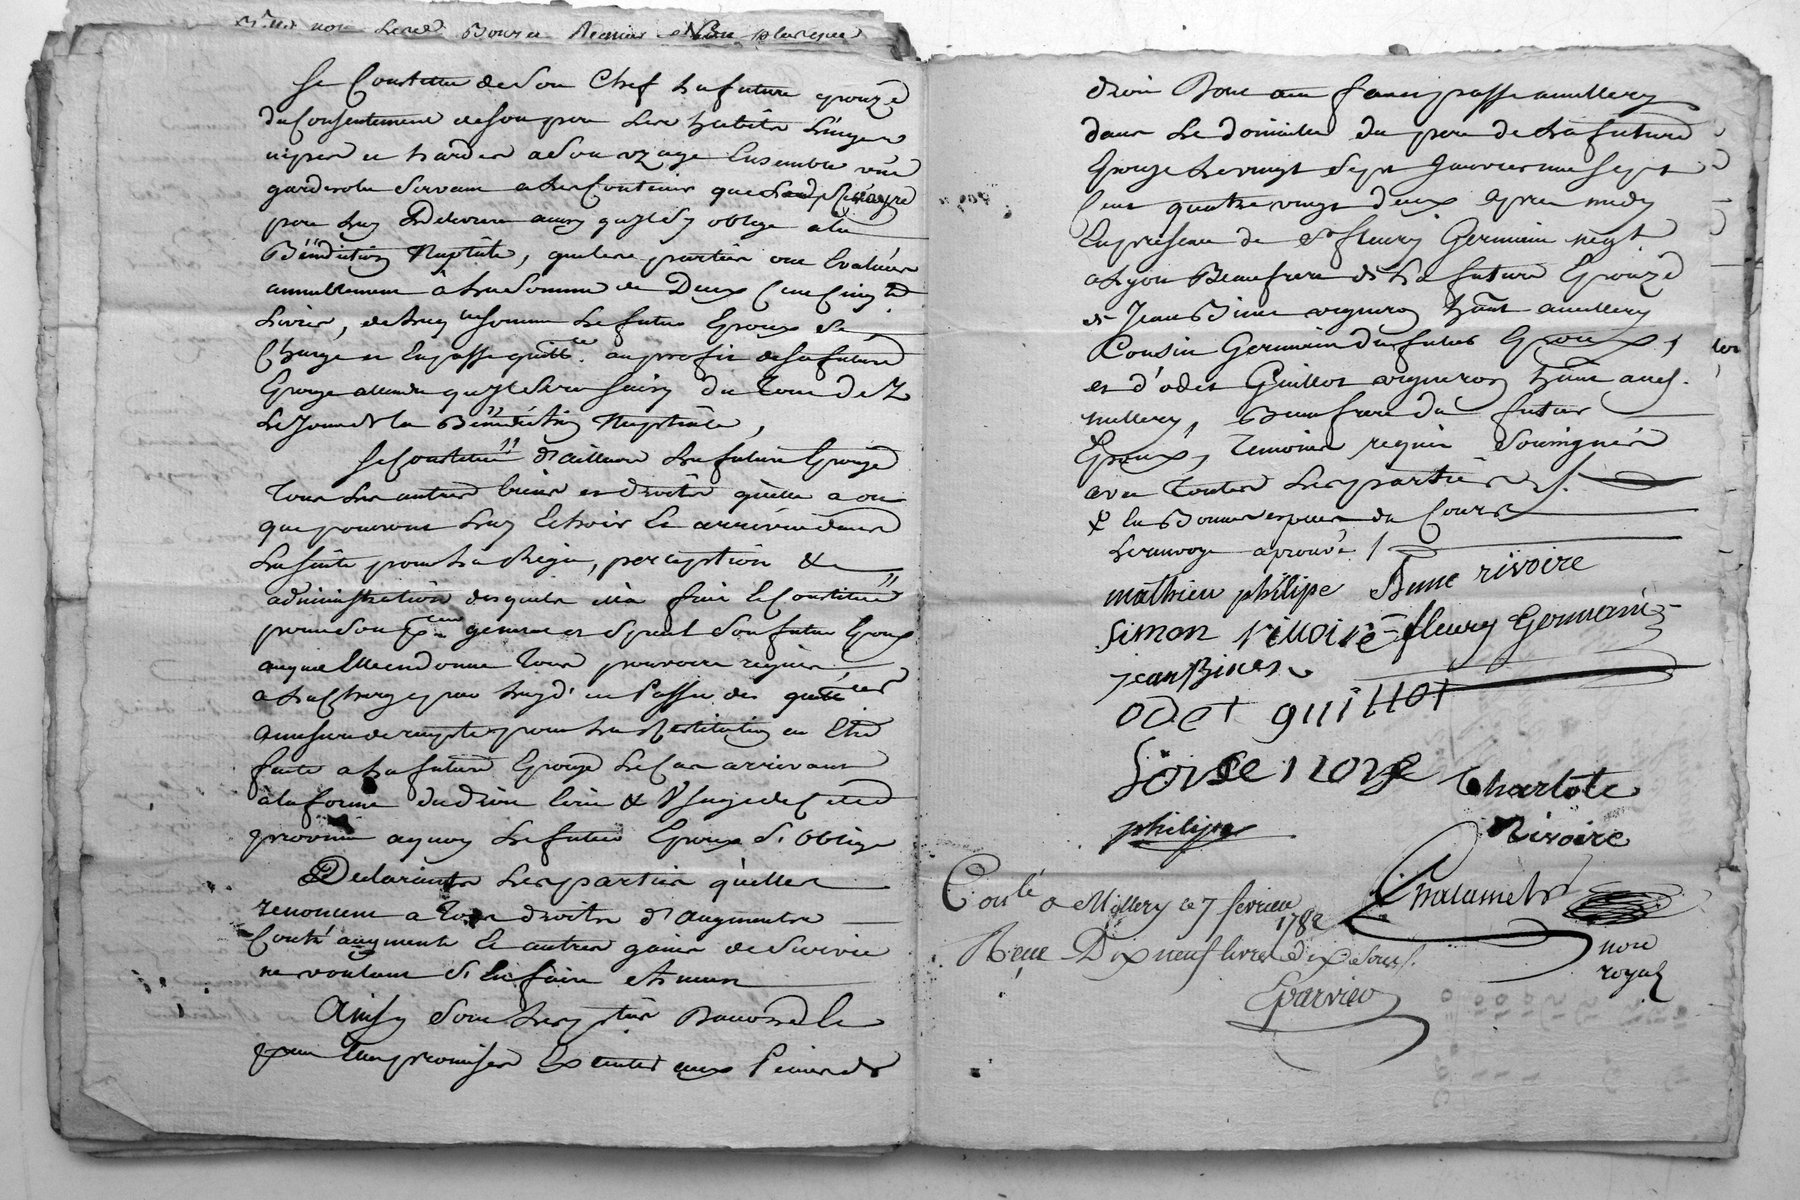 Se Constitue de Son Chef La future epouze
du Consentement de Son pere Les habits Linges
nipes et hardes a Son uzage Ensemble une
garderobe Servant a Les Contenir que Led Sr Rivoire
pere Luy Delivrera ainsy qu'il S'y oblige a la
Bénédiction Nuptiale, que Les parties ont Evalués
annuellement à La Somme de Deux Cent Cinq.te
Livres, de Laq.lle somme Le futur Epoux Se
Charge et En passe quitt.ce au profit de Sa future
Epouze attendu qu'il Sera Saisy du Tout Dez
Le Jour de la Bénédiction Nuptiale,
Se Constitue d'ailleurs La future Epouze
Tous Les autres biens et droits qu'elle a ou
que pourront Luy Echoir Et arriver dans
La Suite pour La Régie, perception &
administration desquels Elle fait Et Constitue
pour Son general et Special Son futur Epoux
auquel Elle en donne Tous pouvoirs requis
a La Charge par Luy d'en Passer des quitt.ces
a mesure de recepte pour La Restitution en Etre
faite a La future Epouze Le Cas arrivant
à la forme du droit Ecrit & Usage de Cette
province a quoy Le futur Epoux S'oblige
Declarants Les parties qu'elles
renoncent a Tous droits d'augments
Contr'augments Et autres gains de Survie
ne voulant S'En faire Aucun
Ainsy Sont Les ptïes
pour Leurs promisses Executer aux Peines de
droit Dont acte fait et passé a millery
dans Le domicile du pere de La future
Epouze Le vingt Sept Janvier mil Sept
Cent quatre vingt deux apres midy
En présence de Sr fleury Germain negt
a Lyon Beaufrere de La future Epouze
de Jean Bines vigneron h.ant a millery
Cousin Germain du futur Epoux,
et d'odet Guillot vigneron h.ant aud.
millery, Beaufrere du futur
Epoux, Temoins requis Soussignés
avec Toutes Les parties ./.
& En Bonnes especes du Cours
Le renvoye aprouvé /
mathieu philipe Anne rivoire
Simon rivoire fleury Germain
jean Bines
odet guillot
Charlote
philipe
Rivoire
Chalamel
nore
royal
Con.lé a Millery ce 7 fevrier
1782
Reçu Dix neuf livres dix sous
Eparvier